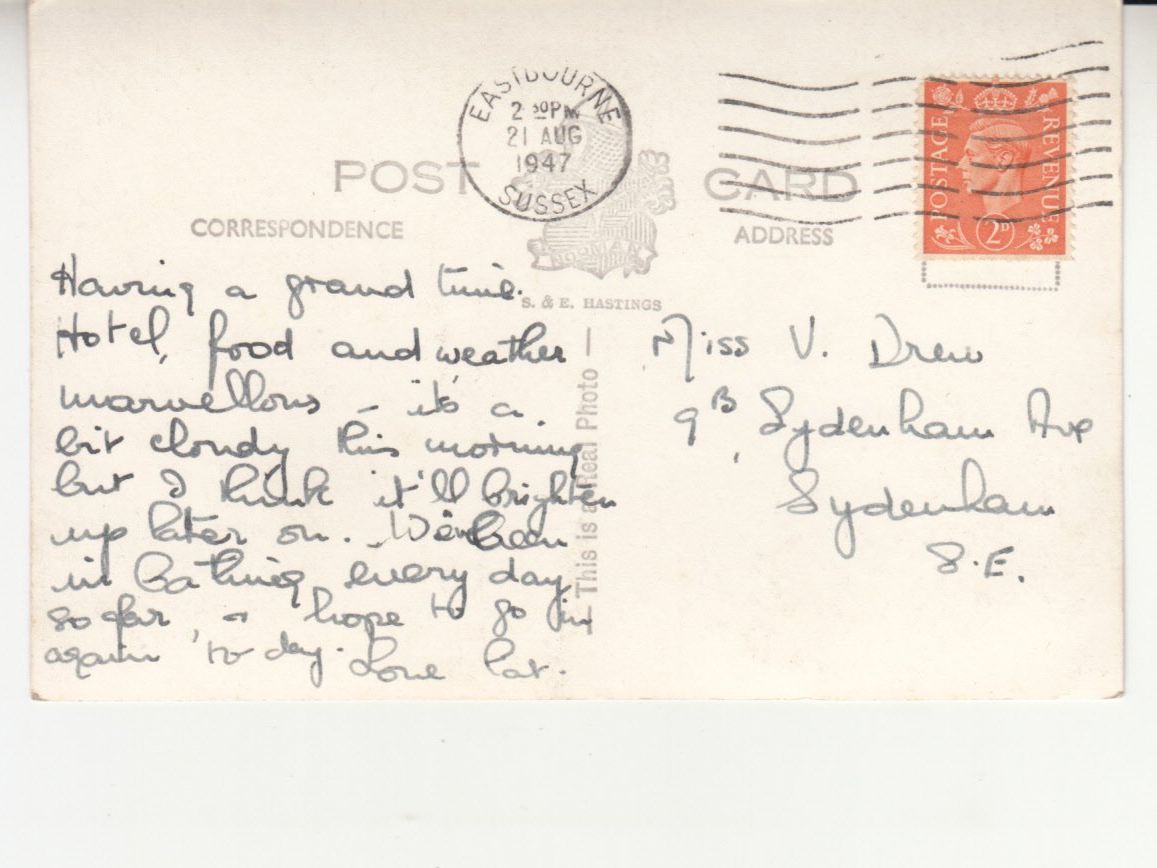 EASTBOURNE
2 30PM
21 AUG
1947
SUSSEX
POSTAGE REVENUE
2D
POST CARD
CORRESPONDENCE
ADDRESS
NORMAN
S. & E. HASTINGS
This is a Real Photo
Having a grand time.
Hotel, food and weather
marvellous - it's a
bit cloudy this morning
but I think it'll brighten
up later on. We've been
in bathing every day
so far & hope to go in
again to day. Love Pat.
Miss V. Drew
9B Sydenham Ave
Sydenham
S.E.